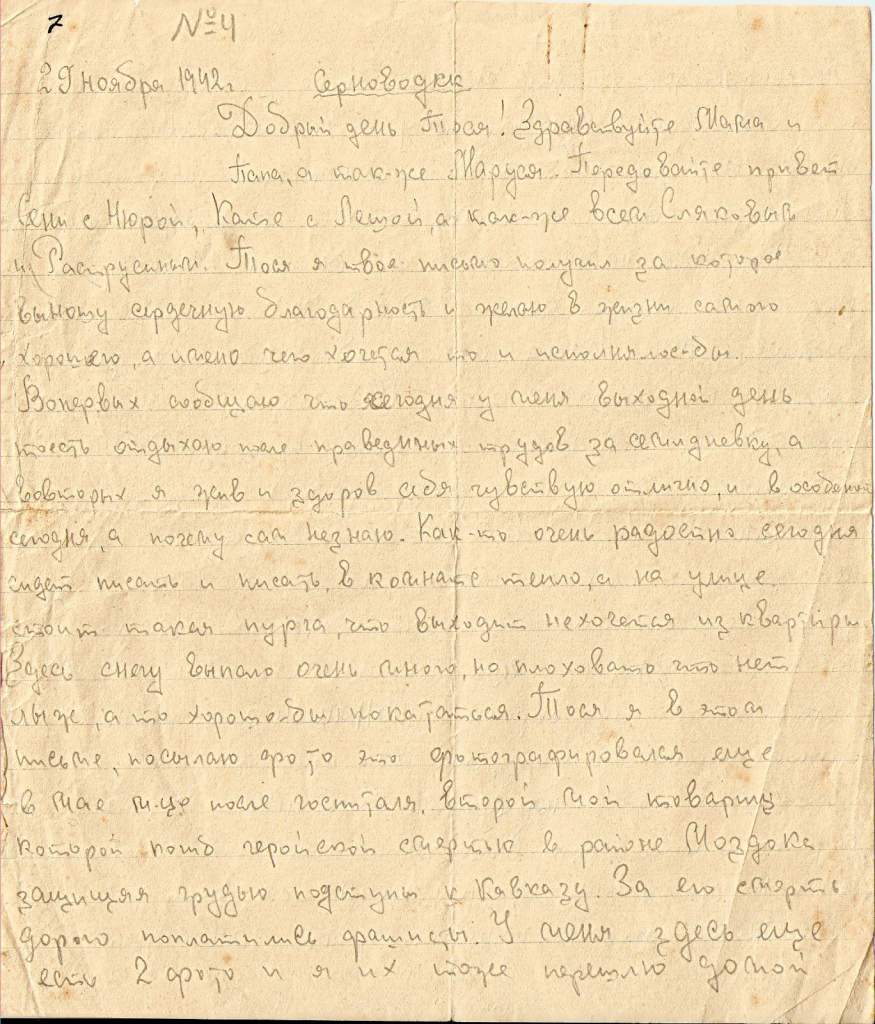 7 №4
29 ноября 1942г. Серноводск
Добрый день Тося! Здравствуйте Мама и
Папа, а так-же Маруся. Передовайте привет
Сени с Нюрой, Кате с Лешой, а так-же всем Сляковым
и Распрусиным. Тося я твое письмо получил за которое
выношу сердечную благодарность и желаю в жизни самого
хорошего, а имено чего хочется то и исполнялось-бы.
Вопервых сообщаю что сегодня у меня выходной день
тоесть отдыхаю после праведных трудов за семидневку, а
вовторых я жив и здоров себя чувствую отлично, и в особеной
сегодня, а почему сам незнаю. Как-то очень радостно сегодня
сидет писать и писать, в комнате тепло, а на улице
стоит такая пурга, что выходит нехочется из квартиры
Здесь снегу выпало очень много, но плоховато что нет
лыж, а то хорошо-бы покататься. Тося я в этом
письме, посылаю фото это фотографировался еще
в мае м-це после госпиталя, второй мой товарищ
которой погиб геройской смертью в районе Моздока
защищяя грудью подступы к Кавказу. За его смерть
дорого поплатились фашисты. У меня здесь еще
есть 2 фото и я их тоже перешлю домой